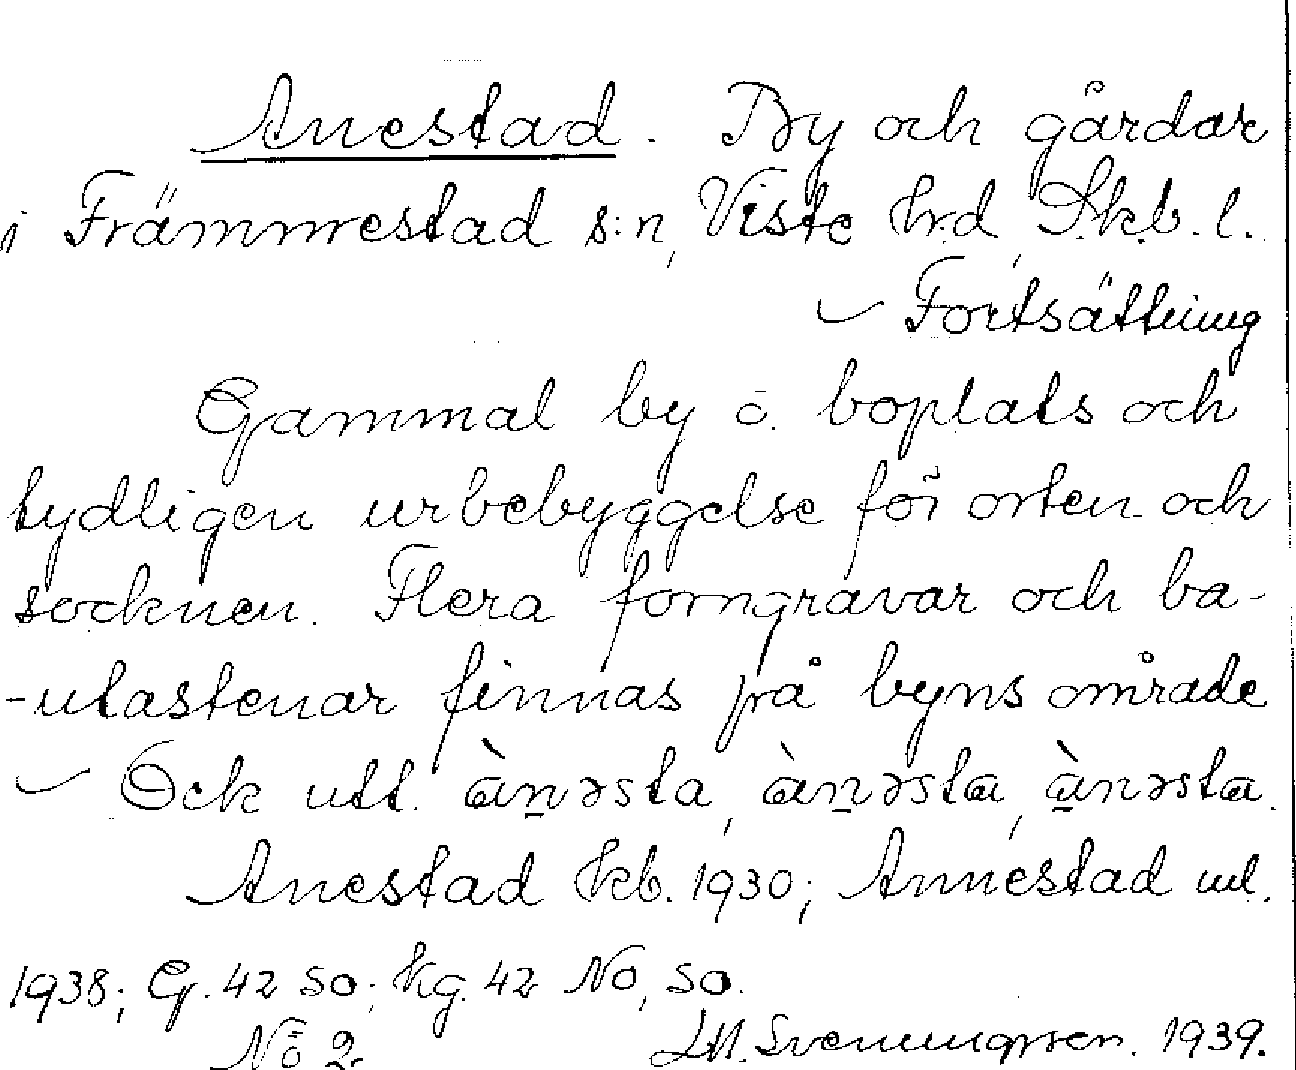 Anestad. By och gårdar
i Främmestad s:n, Viste hrd, Skb. l.
~ Fortsättning
Gammal by o. boplats och
tydligen urbebyggelse för orten och
socknen. Flera forngravar och ba-
-utastenar finnas på byns område
~ Ock utt. àn̲əsta, àn̲əsta, à̲nəsta.
Anestad kb. 1930; Annestad ul.
1938; G. 42 SO; hg. 42 NO, SO.
No 2 LM. Svenungsson. 1939.